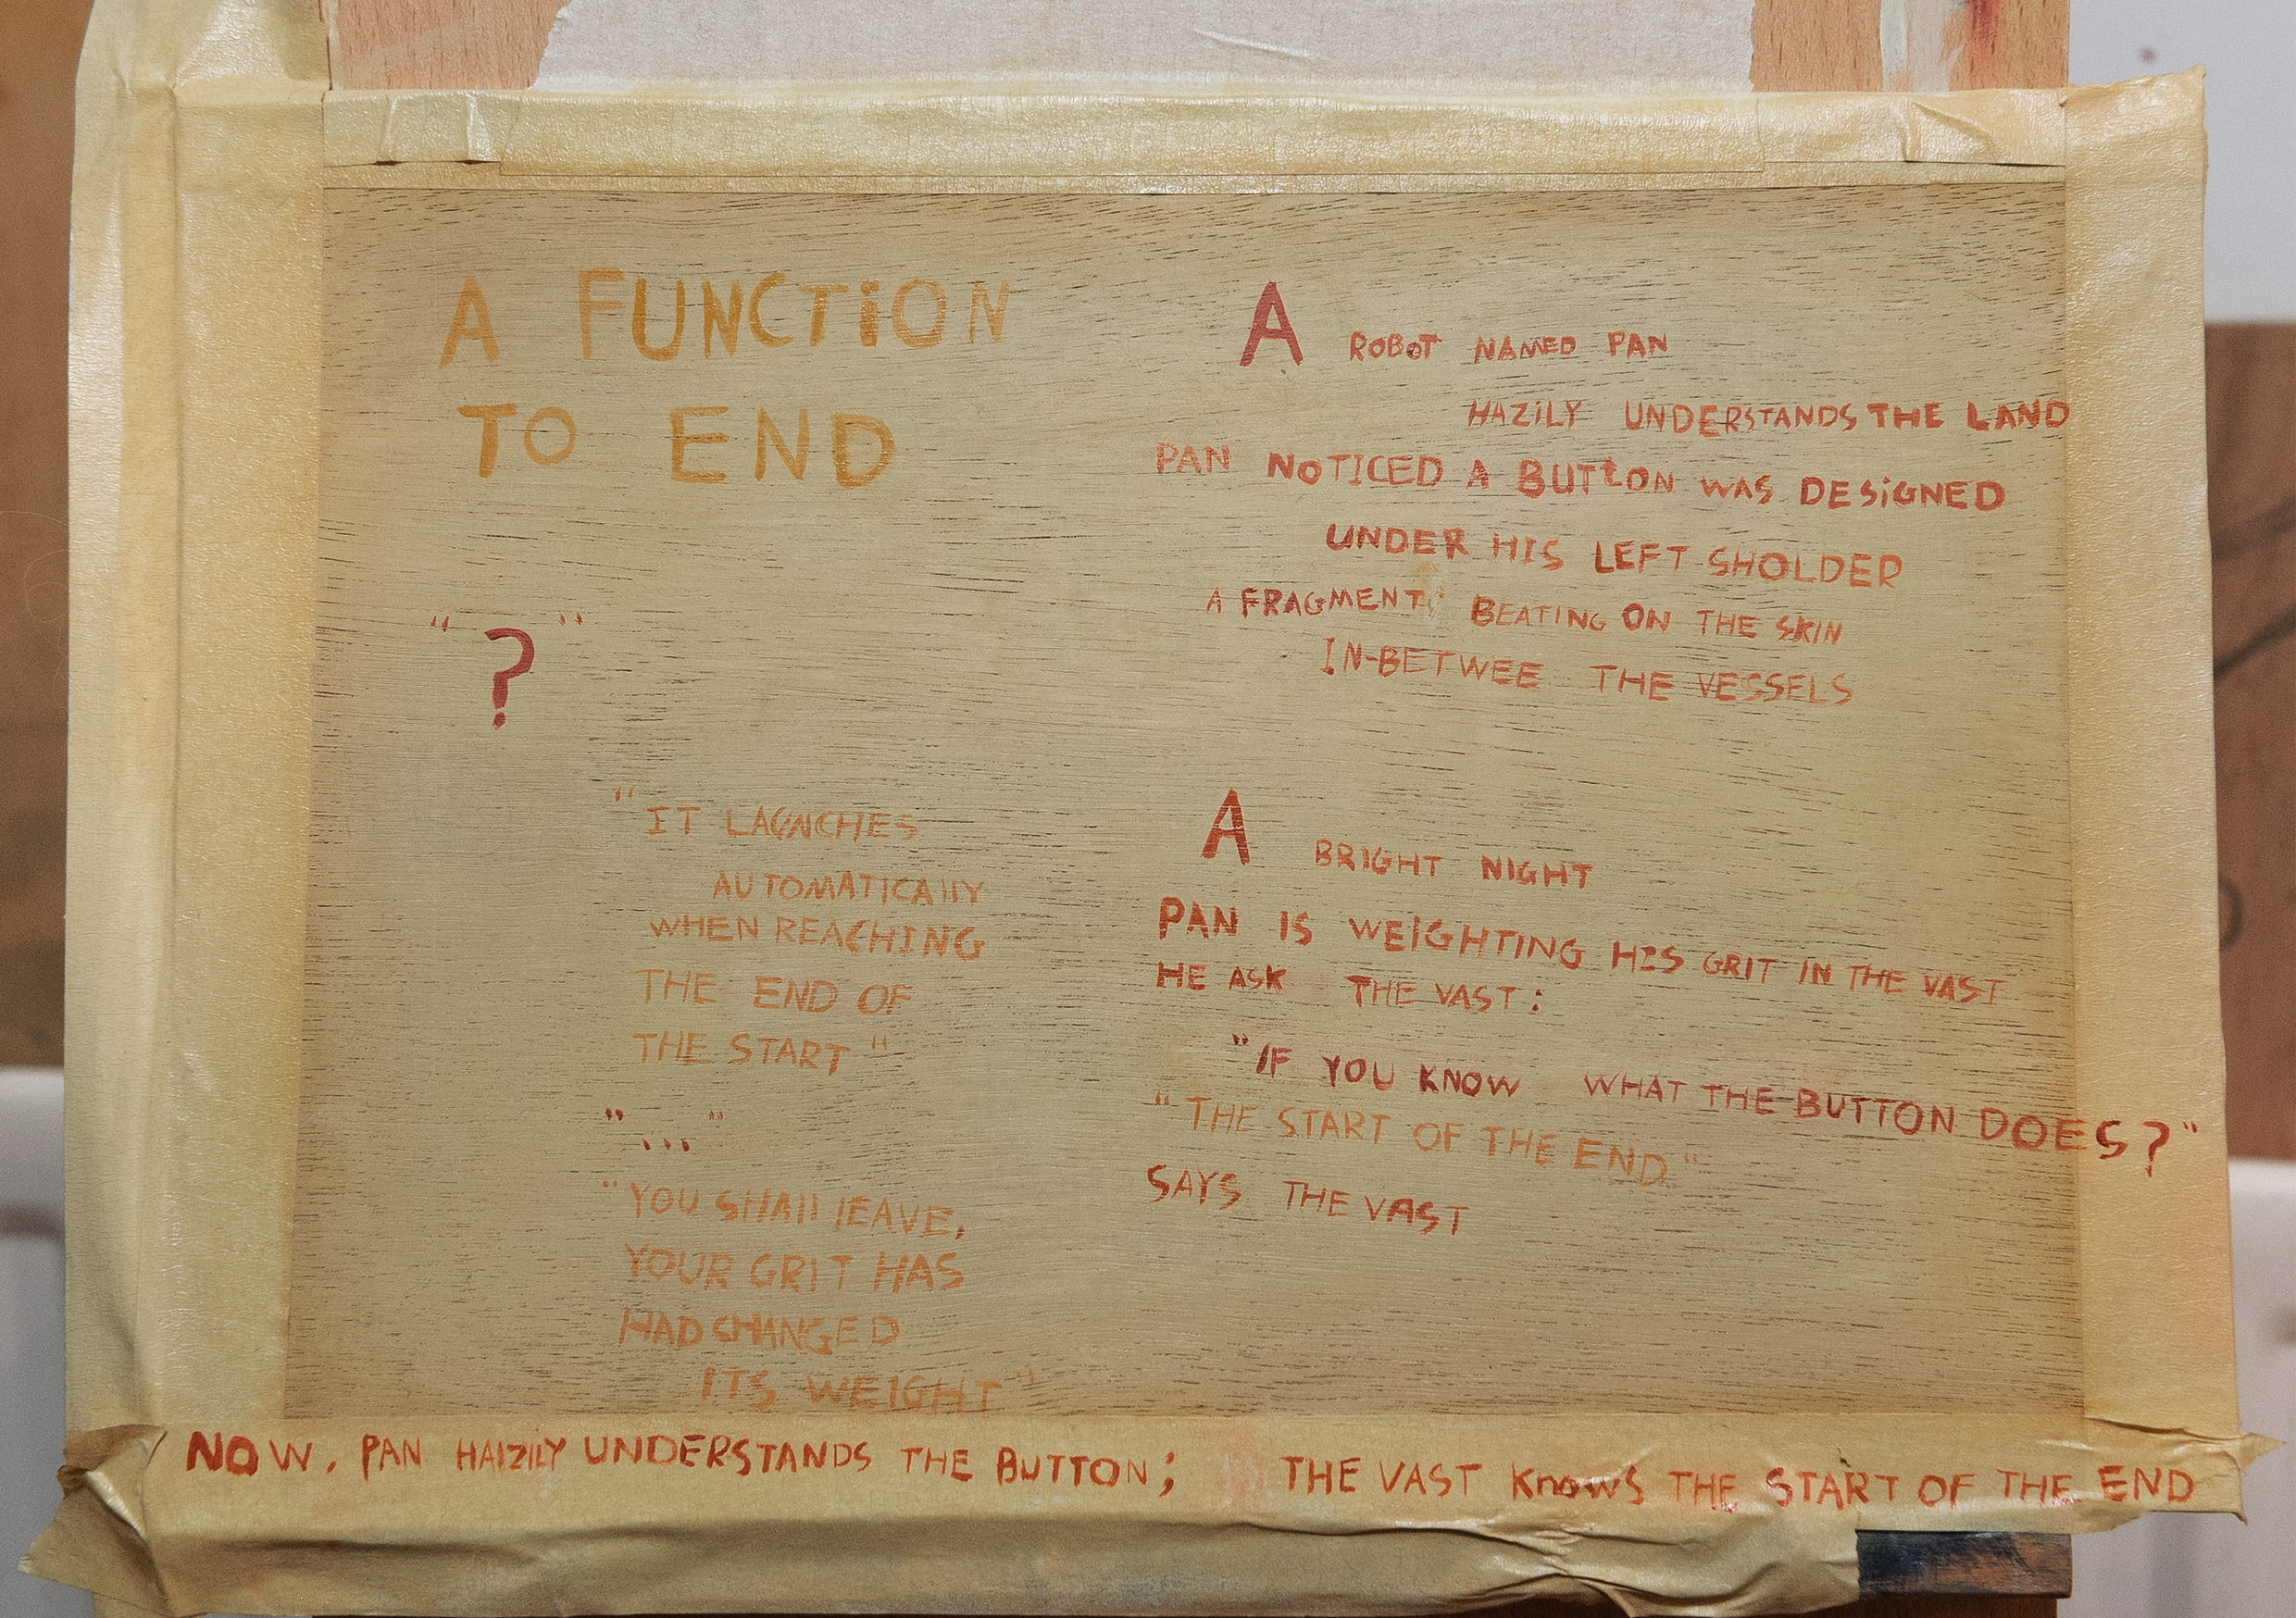 A FUNCTION
TO END
A ROBOT NAMED PAN
HAZILY UNDERSTANDS THE LAND
PAN NOTICED A BUTTON WAS DESIGNED
UNDER HIS LEFT SHOLDER
A FRAGMENT BEATING ON THE SKIN
IN-BETWEE THE VESSELS
A BRIGHT NIGHT
PAN IS WEIGHTING HIS GRIT IN THE VAST
HE ASK THE VAST:
"IF YOU KNOW WHAT THE BUTTON DOES?"
"THE START OF THE END"
SAYS THE VAST
"?"
"IT LAUNCHES
AUTOMATICAllY
WHEN REACHING
THE END OF
THE START"
"..."
"YOU SHAll lEAVE,
YOUR GRIT HAS
HAD CHANGED
ITS WEIGHT"
NOW, PAN HAIZIlY UNDERSTANDS THE BUTTON; THE VAST KnowS THE START OF THE END